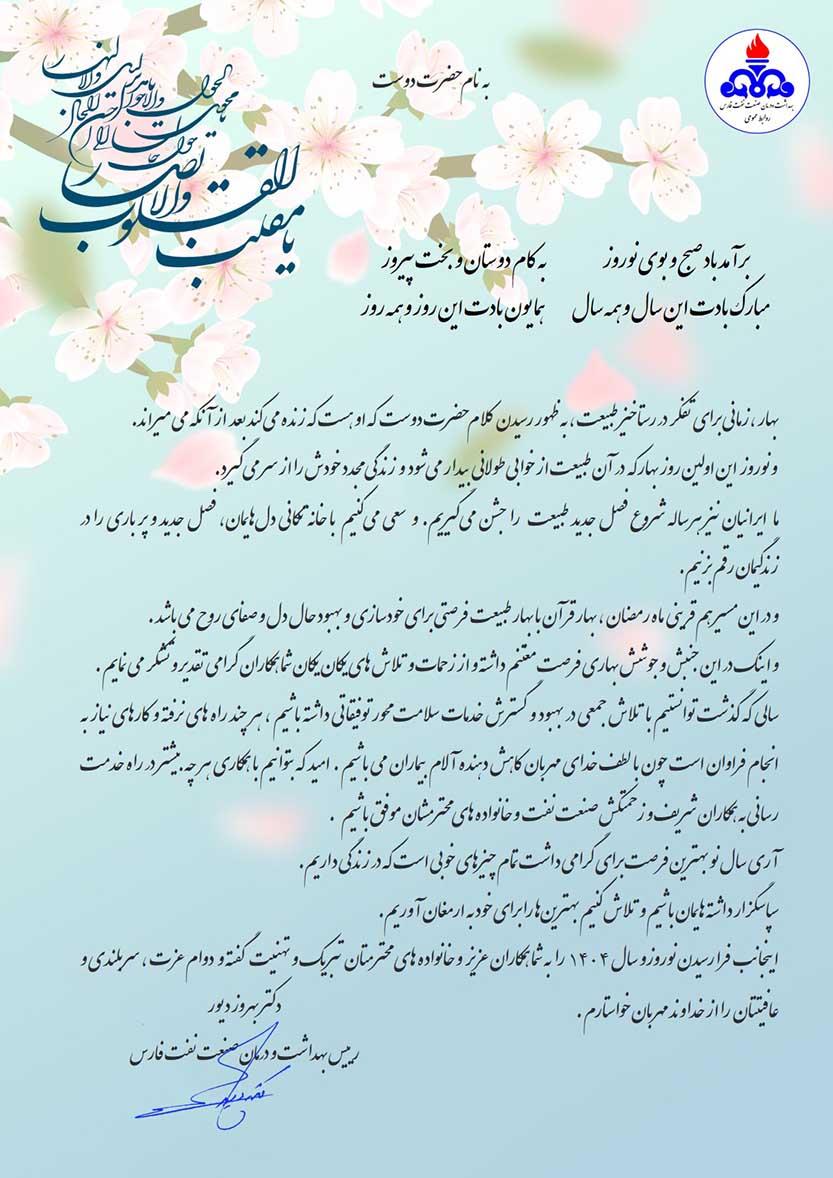 به نام حضرت دوست
بهداشت و درمان صنعت نفت فارس
روابط عمومی
یا مقلب القلوب والابصار
برآمد باد صبح و بوی نوروز به کام دوستان و بخت پیروز
مبارک بادت این سال و همه سال همایون بادت این روز و همه روز
بهار، زمانی برای تفکر در رستاخیز طبیعت، به ظهور رسیدن کلام حضرت دوست که او هست که زنده می کند بعد از آنکه می میراند.
و نوروز این اولین روز بهار که در آن طبیعت از خوابی طولانی بیدار می شود و زندگی مجدد خودش را از سر می گیرد.
ما ایرانیان نیز هر ساله شروع فصل جدید طبیعت را جشن می گیریم. و سعی می کنیم با خانه تکانی دل هایمان، فصل جدید و پر باری را در
زندگیمان رقم بزنیم.
و در این مسیر هم قرینی ماه رمضان، بهار قرآن با بهار طبیعت فرصتی برای خودسازی و بهبود حال دل و صفای روح می باشد.
و اینک در این جنبش و جوشش بهاری فرصت مغتنم داشته و از زحمات و تلاش های یکان یکان شما همکاران گرامی تقدیر و تشکر می نمایم.
سالی که گذشت توانستیم با تلاش جمعی در بهبود و گسترش خدمات سلامت محور توفیقاتی داشته باشیم، هر چند راه های نرفته و کارهای نیاز به
انجام فراوان است چون با لطف خدای مهربان کاهش دهنده آلام بیماران می باشیم. امید که بتوانیم با همکاری هرچه بیشتر در راه خدمت
رسانی به همکاران شریف و زحمتکش صنعت نفت و خانواده های محترمشان موفق باشیم.
آری سال نو بهترین فرصت برای گرامی داشت تمام چیزهای خوبی است که در زندگی داریم.
سپاسگزار داشته هایمان باشیم و تلاش کنیم بهترین ها را برای خود به ارمغان آوریم.
اینجانب فرا رسیدن نوروز و سال ۱۴۰۴ را به شما همکاران عزیز و خانواده های محترمتان تبریک و تهنیت گفته و دوام عزت، سربلندی و
عافیتتان را از خداوند مهربان خواستارم.
دکتر بهروز دیور
رییس بهداشت و درمان صنعت نفت فارس